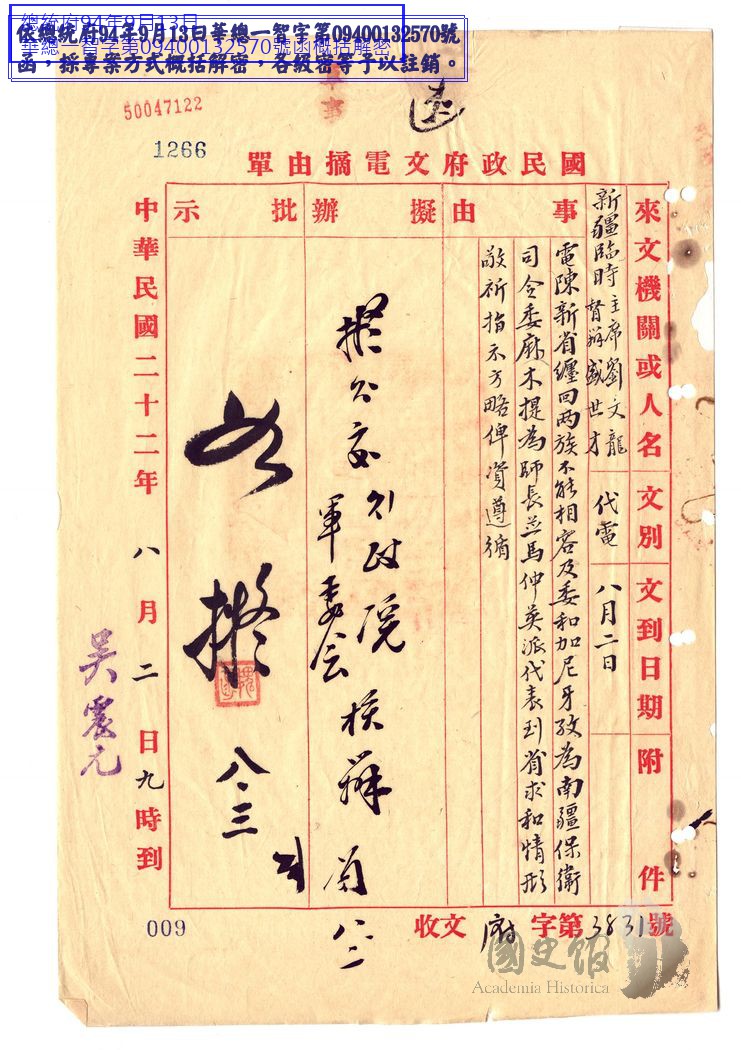 總統府94年9月13日
華總一智字第09400132570號函概括解密
依總統府94年9月13日華總一智字第09400132570號
函，採專案方式概括解密，各級密等予以註銷。
50047122
1266
國民政府文電摘由單
來文機關或人名
新疆臨時主席劉文龍
督辦盛世才
文別
代電
文到日期
八月二日
附件
事由
電陳新省纏回兩族不能相容及委和加尼牙孜為南疆保衛
司令委麻木提為師長並馬仲英派代表到省求和情形
敬祈指示方略俾資遵循
擬辦
擬公交
行政院
軍委会
核辦
八.二
批示
如擬
八.三
中華民國二十二年八月二日九時到
吳震元
府字第3831號
收文
009
國史館
Academia Historica